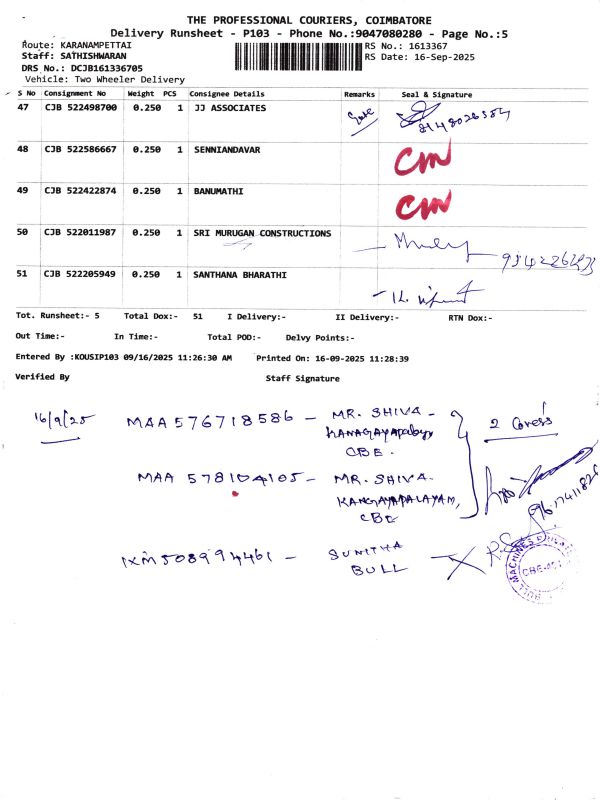 THE PROFESSIONAL COURIERS, COIMBATORE
Delivery Runsheet - P103 - Phone No.:9047080280 - Page No.:5
Route: KARANAMPETTAI RS No.: 1613367
Staff: SATHISHWARAN RS Date: 16-Sep-2025
DRS No.: DCJB161336705
Vehicle: Two Wheeler Delivery
S No Consignment No Weight PCS Consignee Details Remarks Seal & Signature
47 CJB 522498700 0.250 1 JJ ASSOCIATES
48 CJB 522586667 0.250 1 SENNIANDAVAR
49 CJB 522422874 0.250 1 BANUMATHI
50 CJB 522011987 0.250 1 SRI MURUGAN CONSTRUCTIONS
51 CJB 522205949 0.250 1 SANTHANA BHARATHI
Tot. Runsheet:- 5 Total Dox:- 51 I Delivery:- II Delivery:- RTN Dox:-
Out Time:- In Time:- Total POD:- Delvy Points:-
Entered By :KOUSIP103 09/16/2025 11:26:30 AM Printed On: 16-09-2025 11:28:39
Verified By Staff Signature
16/9/25 MAA 576718586 - MR. SHIVA -
CBE.
MAA 578104105 - MR. SHIVA.
KANGAYAPALAYAM,
CBE
IXM508994461 - SUNITHA
BULL